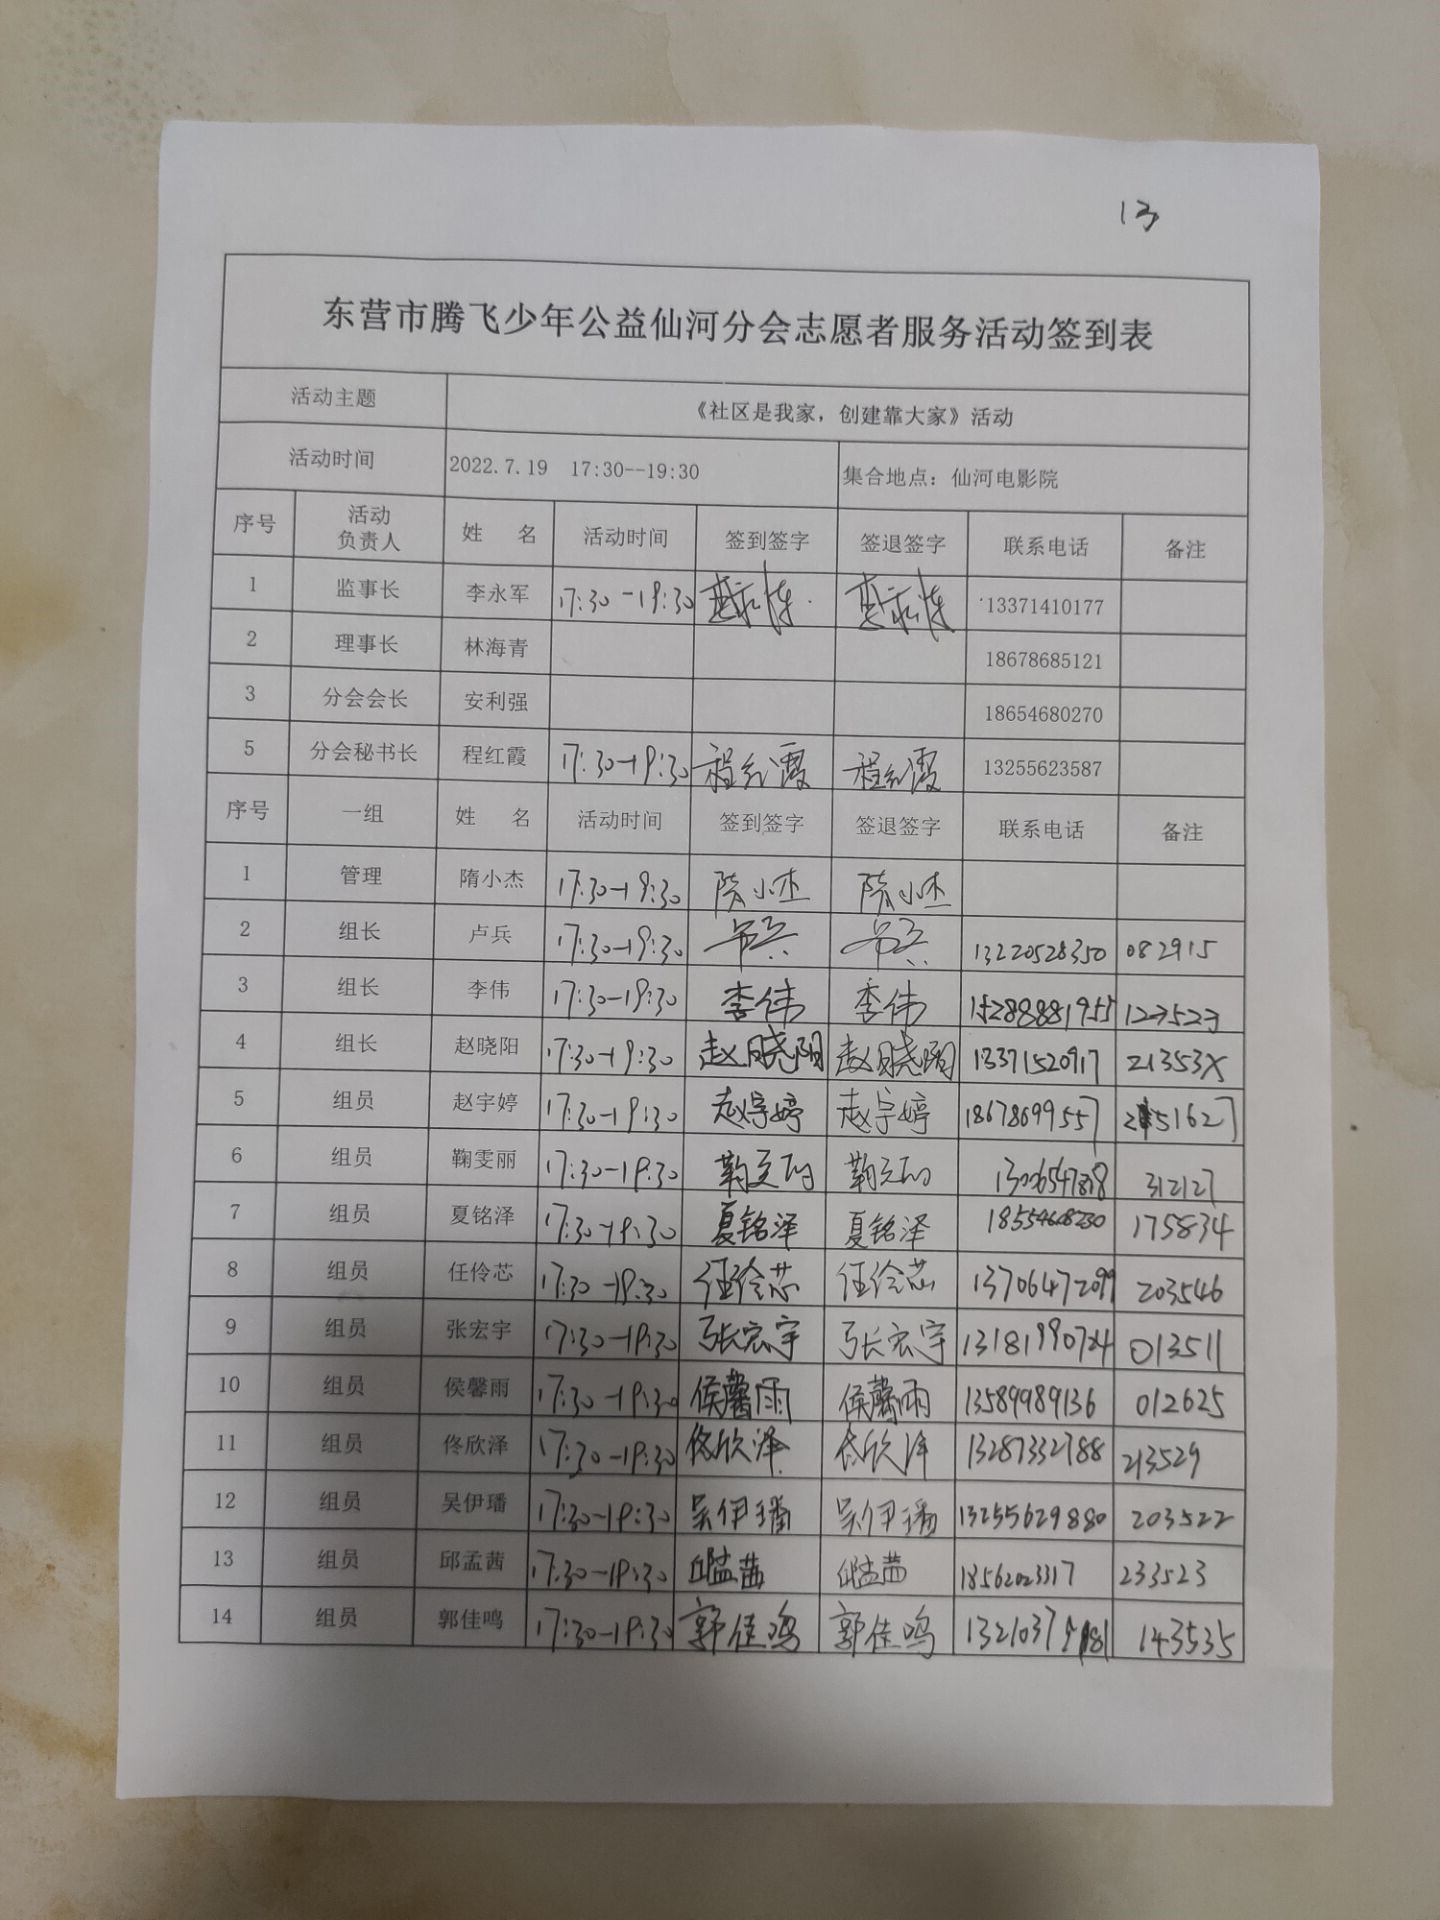 13
东营市腾飞少年公益仙河分会志愿者服务活动签到表
活动主题 《社区是我家，创建靠大家》活动
活动时间 2022.7.19 17:30--19:30 集合地点：仙河电影院
序号 活动负责人 姓 名 活动时间 签到签字 签退签字 联系电话 备注
1 监事长 李永军 17:30-19:30 13371410177
2 理事长 林海青 18678685121
3 分会会长 安利强 18654680270
5 分会秘书长 程红霞 17:30-19:30 程红霞 程红霞 13255623587
序号 一组 姓 名 活动时间 签到签字 签退签字 联系电话 备注
1 管理 隋小杰 17:30-19:30 隋小杰 隋小杰
2 组长 卢兵 17:30-19:30 卢兵 卢兵 13220528350 082915
3 组长 李伟 17:30-19:30 李伟 李伟 15288881955 123523
4 组长 赵晓阳 17:30-19:30 赵晓阳 赵晓阳 13371520917 21353X
5 组员 赵宇婷 17:30-19:30 赵宇婷 赵宇婷 18678699557
6 组员 鞠雯丽 17:30-19:30 鞠文丽 鞠文丽 312127
7 组员 夏铭泽 17:30-19:30 夏铭泽 夏铭泽 175834
8 组员 任伶芯 17:30-19:30 任伶芯 任伶芯 13706472099 203546
9 组员 张宏宇 17:30-19:30 张宏宇 张宏宇 13181990724 013511
10 组员 侯馨雨 17:30-19:30 侯馨雨 侯馨雨 13589989136 012625
11 组员 佟欣泽 17:30-19:30 佟欣泽 佟欣泽 13287332788 213529
12 组员 吴伊璠 17:30-19:30 吴伊璠 吴伊璠 13255629880 203522
13 组员 邱孟茜 17:30-19:30 邱孟茜 邱孟茜 18562023317 233523
14 组员 郭佳鸣 17:30-19:30 郭佳鸣 郭佳鸣 143535